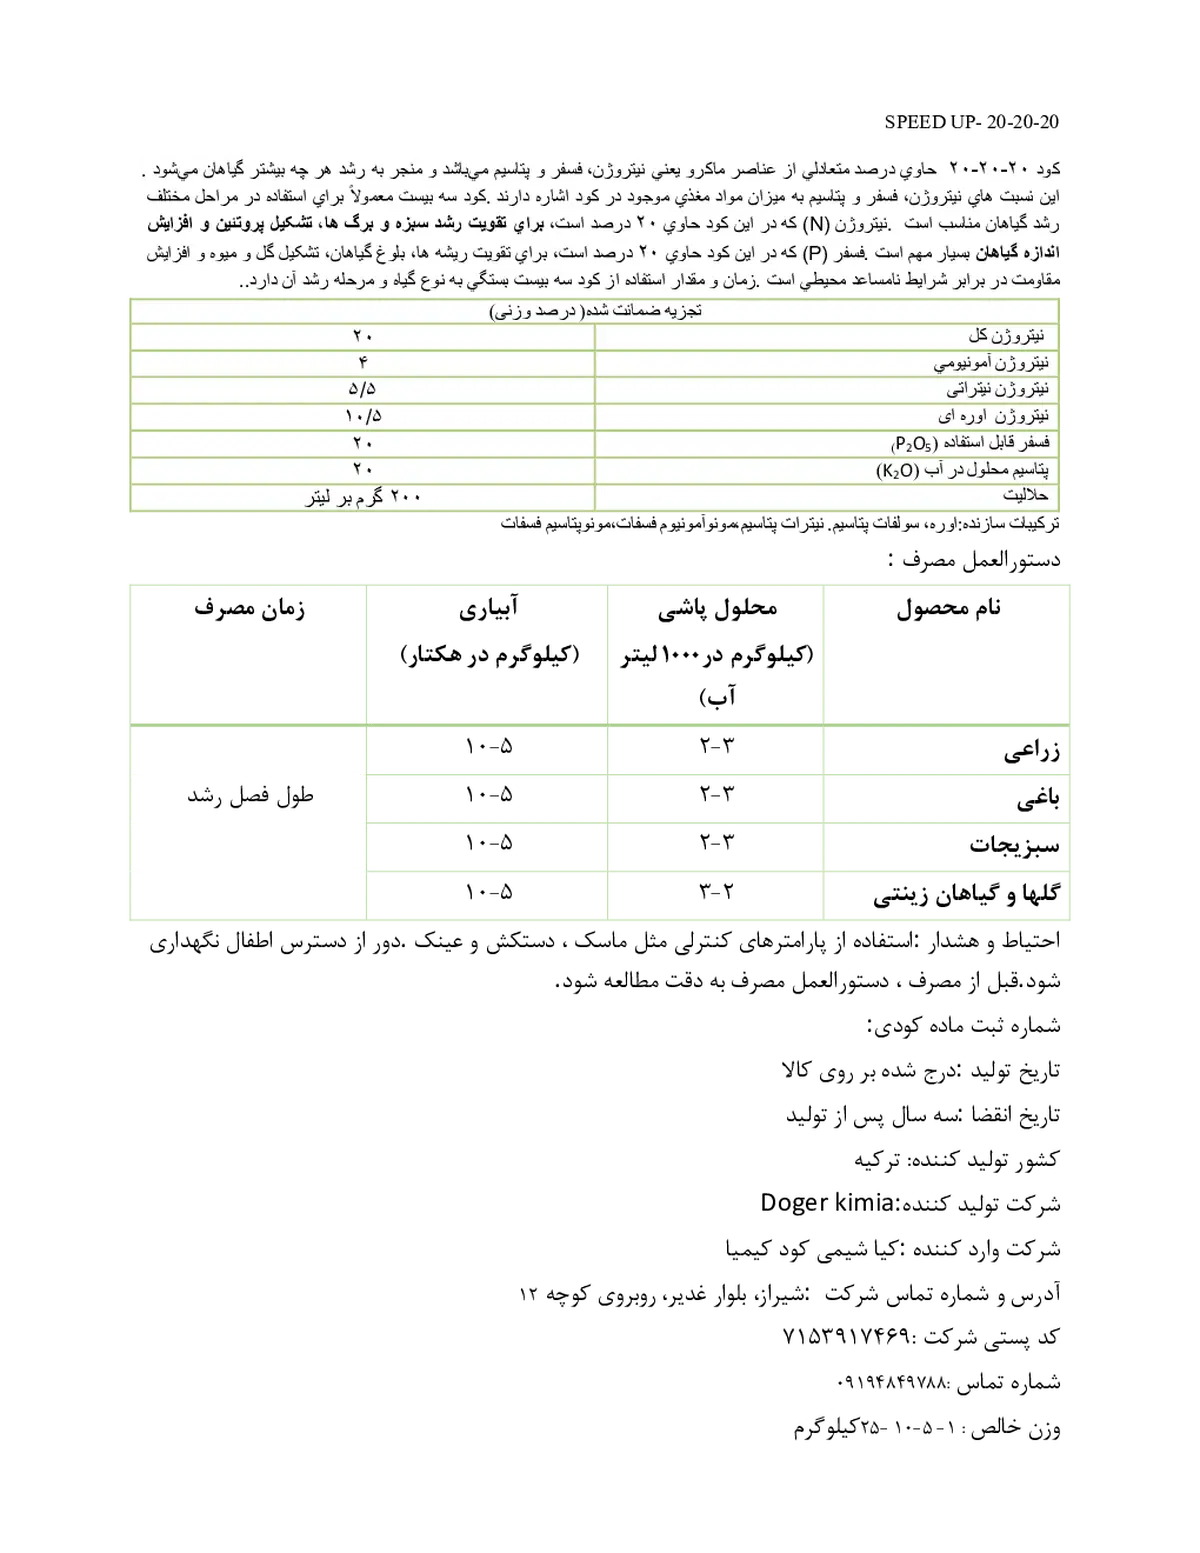 SPEED UP- 20-20-20
کود ۲۰-۲۰-۲۰ حاوي درصد متعادلي از عناصر ماکرو يعني نيتروژن، فسفر و پتاسيم مي‌باشد و منجر به رشد هر چه بيشتر گياهان مي‌شود .
اين نسبت هاي نيتروژن، فسفر و پتاسيم به ميزان مواد مغذي موجود در کود اشاره دارند .کود سه بيست معمولاً براي استفاده در مراحل مختلف
رشد گياهان مناسب است .نيتروژن (N) که در اين کود حاوي ۲۰ درصد است، براي تقويت رشد سبزه و برگ ها، تشکيل پروتئين و افزايش
اندازه گياهان بسيار مهم است .فسفر (P) که در اين کود حاوي ۲۰ درصد است، براي تقويت ريشه ها، بلوغ گياهان، تشکيل گل و ميوه و افزايش
مقاومت در برابر شرايط نامساعد محيطي است .زمان و مقدار استفاده از کود سه بيست بستگي به نوع گياه و مرحله رشد آن دارد..
تجزیه ضمانت شده( درصد وزنی)
نیتروژن کل ۲۰
نيتروژن آمونيومي ۴
نیتروژن نیتراتی ۵/۵
نیتروژن اوره ای ۱۰/۵
فسفر قابل استفاده (P₂O₅) ۲۰
پتاسیم محلول در آب (K₂O) ۲۰
حلالیت ۲۰۰ گرم بر لیتر
ترکیبات سازنده:اوره، سولفات پتاسیم. نیترات پتاسیم،مونوآمونیوم فسفات،مونوپتاسیم فسفات
دستورالعمل مصرف :
نام محصول محلول پاشی آبیاری زمان مصرف
(کیلوگرم در ۱۰۰۰ لیتر (کیلوگرم در هکتار)
آب)
زراعی ۲-۳ ۱۰-۵
باغی ۲-۳ ۱۰-۵ طول فصل رشد
سبزیجات ۲-۳ ۱۰-۵
گلها و گیاهان زینتی ۳-۲ ۱۰-۵
احتیاط و هشدار :استفاده از پارامترهای کنترلی مثل ماسک ، دستکش و عینک .دور از دسترس اطفال نگهداری
شود.قبل از مصرف ، دستورالعمل مصرف به دقت مطالعه شود.
شماره ثبت ماده کودی:
تاریخ تولید :درج شده بر روی کالا
تاریخ انقضا :سه سال پس از تولید
کشور تولید کننده: ترکیه
شرکت تولید کننده:Doger kimia
شرکت وارد کننده :کیا شیمی کود کیمیا
آدرس و شماره تماس شرکت :شیراز، بلوار غدیر، روبروی کوچه ۱۲
کد پستی شرکت :۷۱۵۳۹۱۷۴۶۹
شماره تماس :۰۹۱۹۴۸۴۹۷۸۸
وزن خالص : ۱-۵-۱۰ -۲۵کیلوگرم